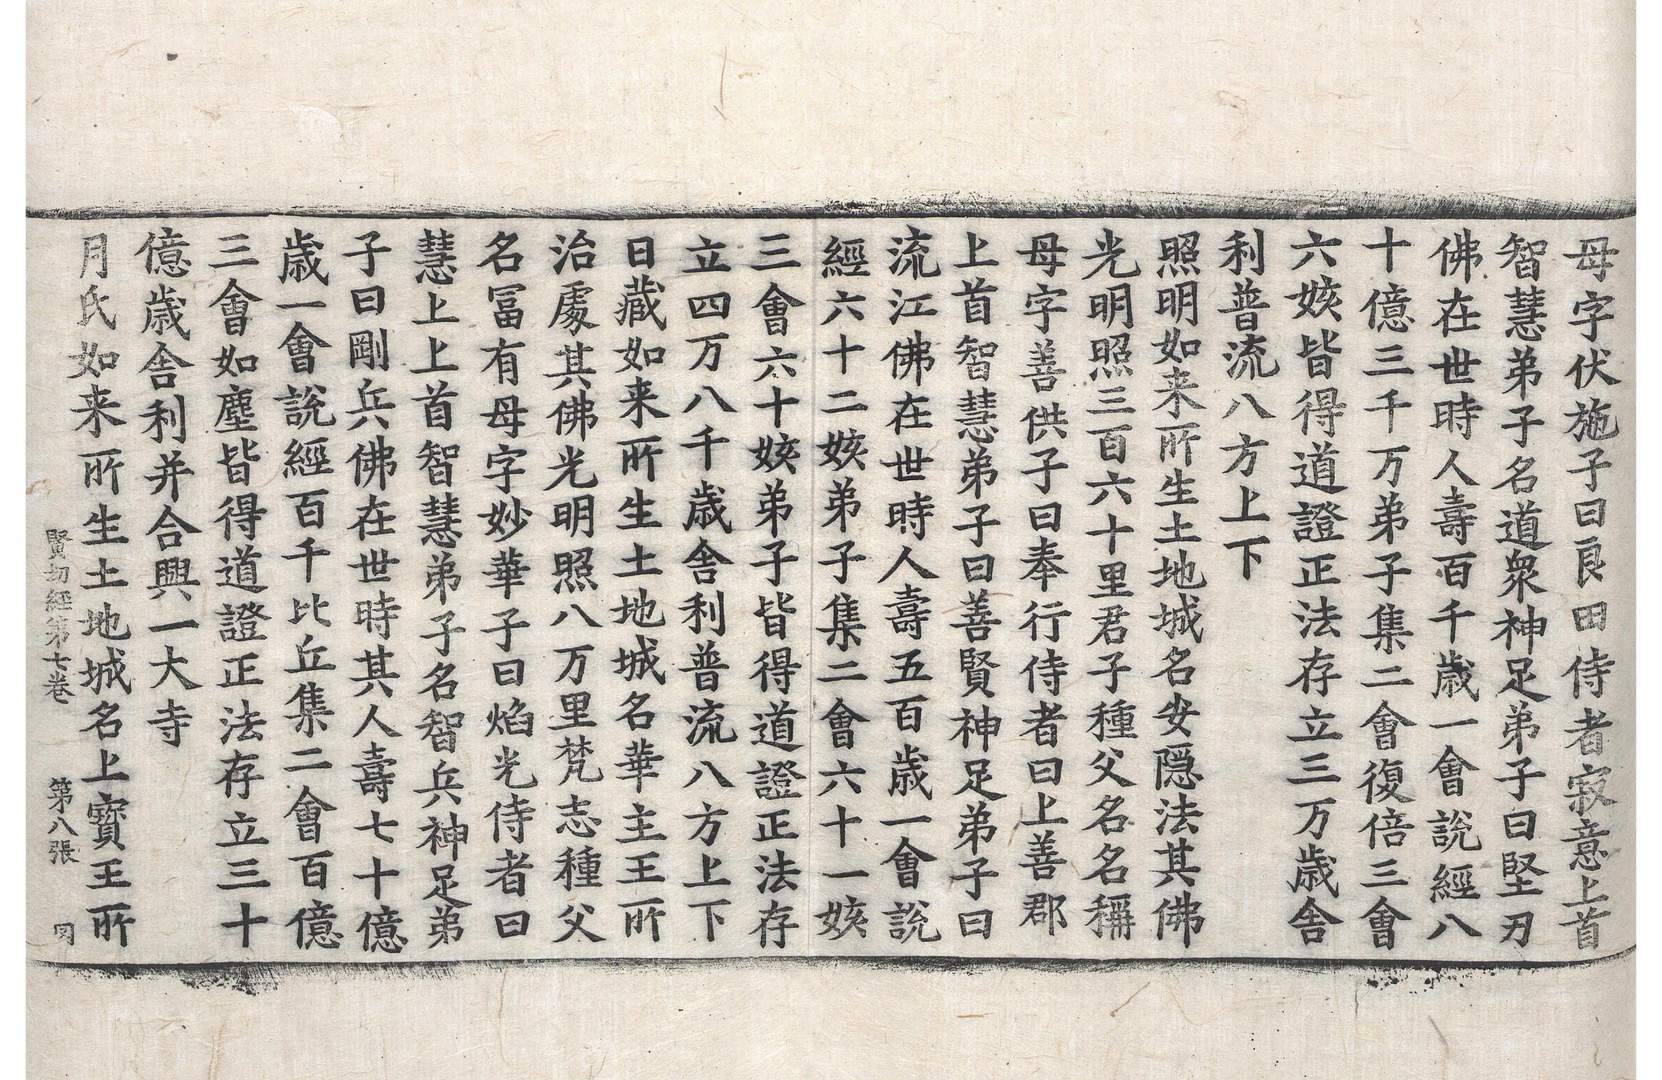 母字伏施子曰良田侍者寂意上首
智慧弟子名道衆神足弟子曰堅刃
佛在世時人壽百千歲一會說經八
十億三千万弟子集二會復倍三會
六姟皆得道證正法存立三万歲舍
利普流八方上下
照明如来所生土地城名安隱法其佛
光明照三百六十里君子種父名名稱
母字善供子曰奉行侍者曰上善郡
上首智慧弟子曰善賢神足弟子曰
流江佛在世時人壽五百歲一會說
經六十二姟弟子集二會六十一姟
三會六十姟弟子皆得道證正法存
立四万八千歲舍利普流八方上下
日藏如来所生土地城名華主王所
治處其佛光明照八万里梵志種父
名冨有母字妙華子曰焰光侍者曰
慧上上首智慧弟子名智兵神足弟
子曰剛兵佛在世時其人壽七十億
歲一會說經百千比丘集二會百億
三會如塵皆得道證正法存立三十
億歲舍利并合興一大寺
月氏如来所生土地城名上寶王所
賢劫經第七卷 第八張